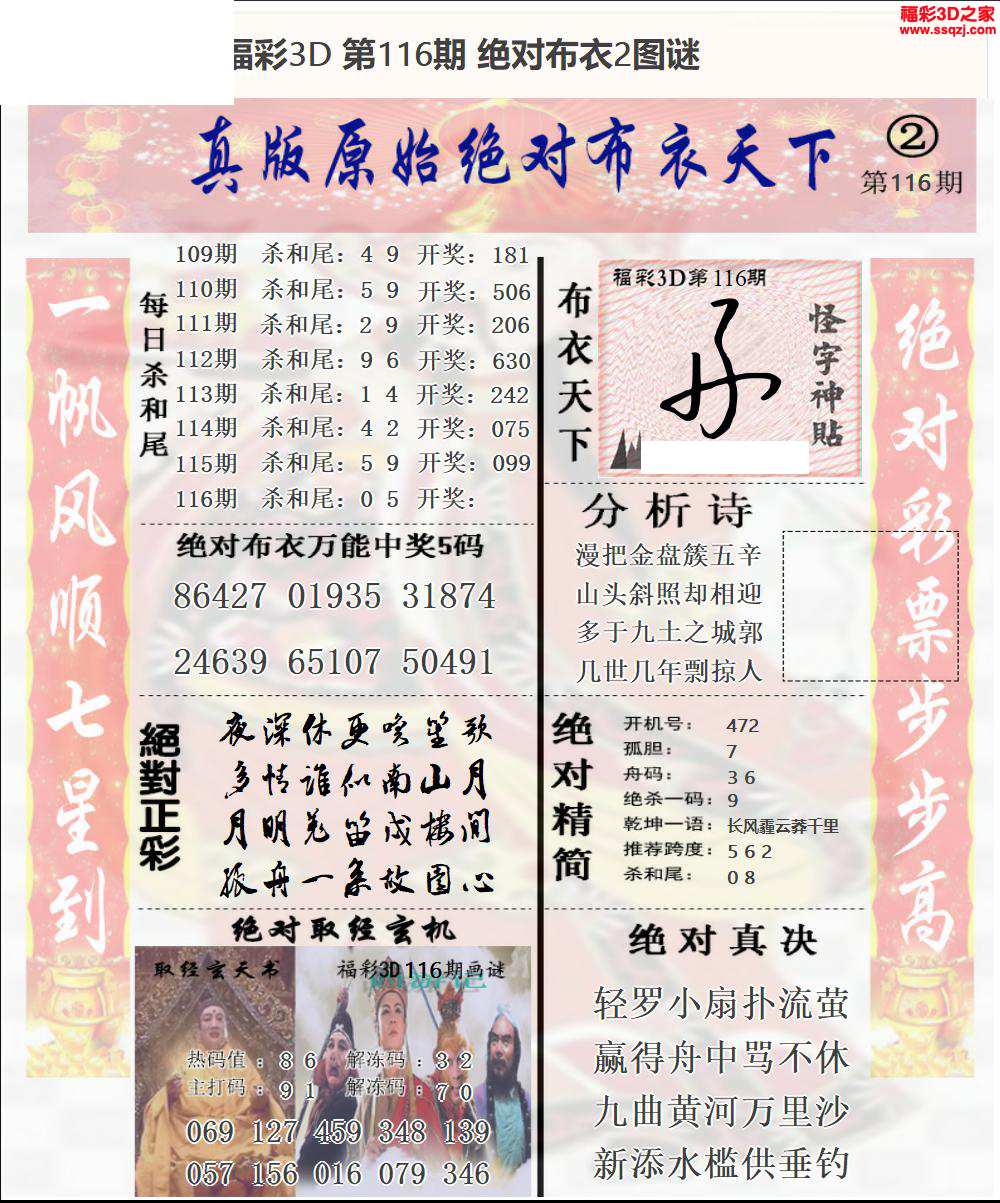 福彩3D之家
www.ssqzj.com
福彩3D 第116期 绝对布衣2图谜
真版原始绝对布衣天下
②
第116期
一帆风顺七星到
每日杀和尾
109期 杀和尾：4 9 开奖：181
110期 杀和尾：5 9 开奖：506
111期 杀和尾：2 9 开奖：206
112期 杀和尾：9 6 开奖：630
113期 杀和尾：1 4 开奖：242
114期 杀和尾：4 2 开奖：075
115期 杀和尾：5 9 开奖：099
116期 杀和尾：0 5 开奖：
绝对布衣万能中奖5码
86427 01935 31874
24639 65107 50491
絕對正彩
夜深休更唤笙歌
多情谁似南山月
月明羌笛戍楼间
孤舟一系故园心
绝对取经玄机
取经玄天书
福彩3D116期画谜
热码值：8 6 解冻码：3 2
主打码：9 1 解冻码：7 0
069 127 459 348 139
057 156 016 079 346
布衣天下
福彩3D第116期
怪字神貼
分析诗
漫把金盘簇五辛
山头斜照却相迎
多于九土之城郭
几世几年剽掠人
绝对精简
开机号：472
孤胆：7
舟码：3 6
绝杀一码：9
乾坤一语：长风霾云莽千里
推荐跨度：5 6 2
杀和尾：0 8
绝对真决
轻罗小扇扑流萤
赢得舟中骂不休
九曲黄河万里沙
新添水槛供垂钓
绝对彩票步步高